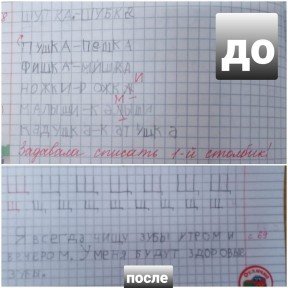 ШУТКА-ШУБКА
до
ПУШКА-ПЕШКА
ФИШКА-МИШКА
И
НОЖКИ-РОЖКА
М
МАЛЫШИ-КАМЫШИ
КАДУШКА-КАТУШКА
Задавала списать 1-й столбик!
Щ Щ Щ Щ Щ Щ Щ
щ щ щ щ щ щ щ щ
Я всегда чищу зубы утром и с 69
вечером. У меня будут здоровые
зубы.
после
Отлично